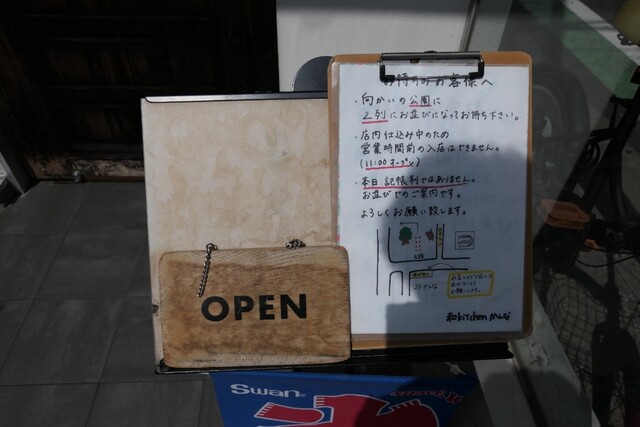 お待ちのお客様へ
・向かいの公園に
２列にお並びになってお待ち下さい。
・店内仕込み中のため
営業時間前の入店はできません。
(11:00オープン)
・本日記帳制ではありません。
お並びでのご案内です。
よろしくお願い致します。
和kitchenかんな
OPEN
Swan®